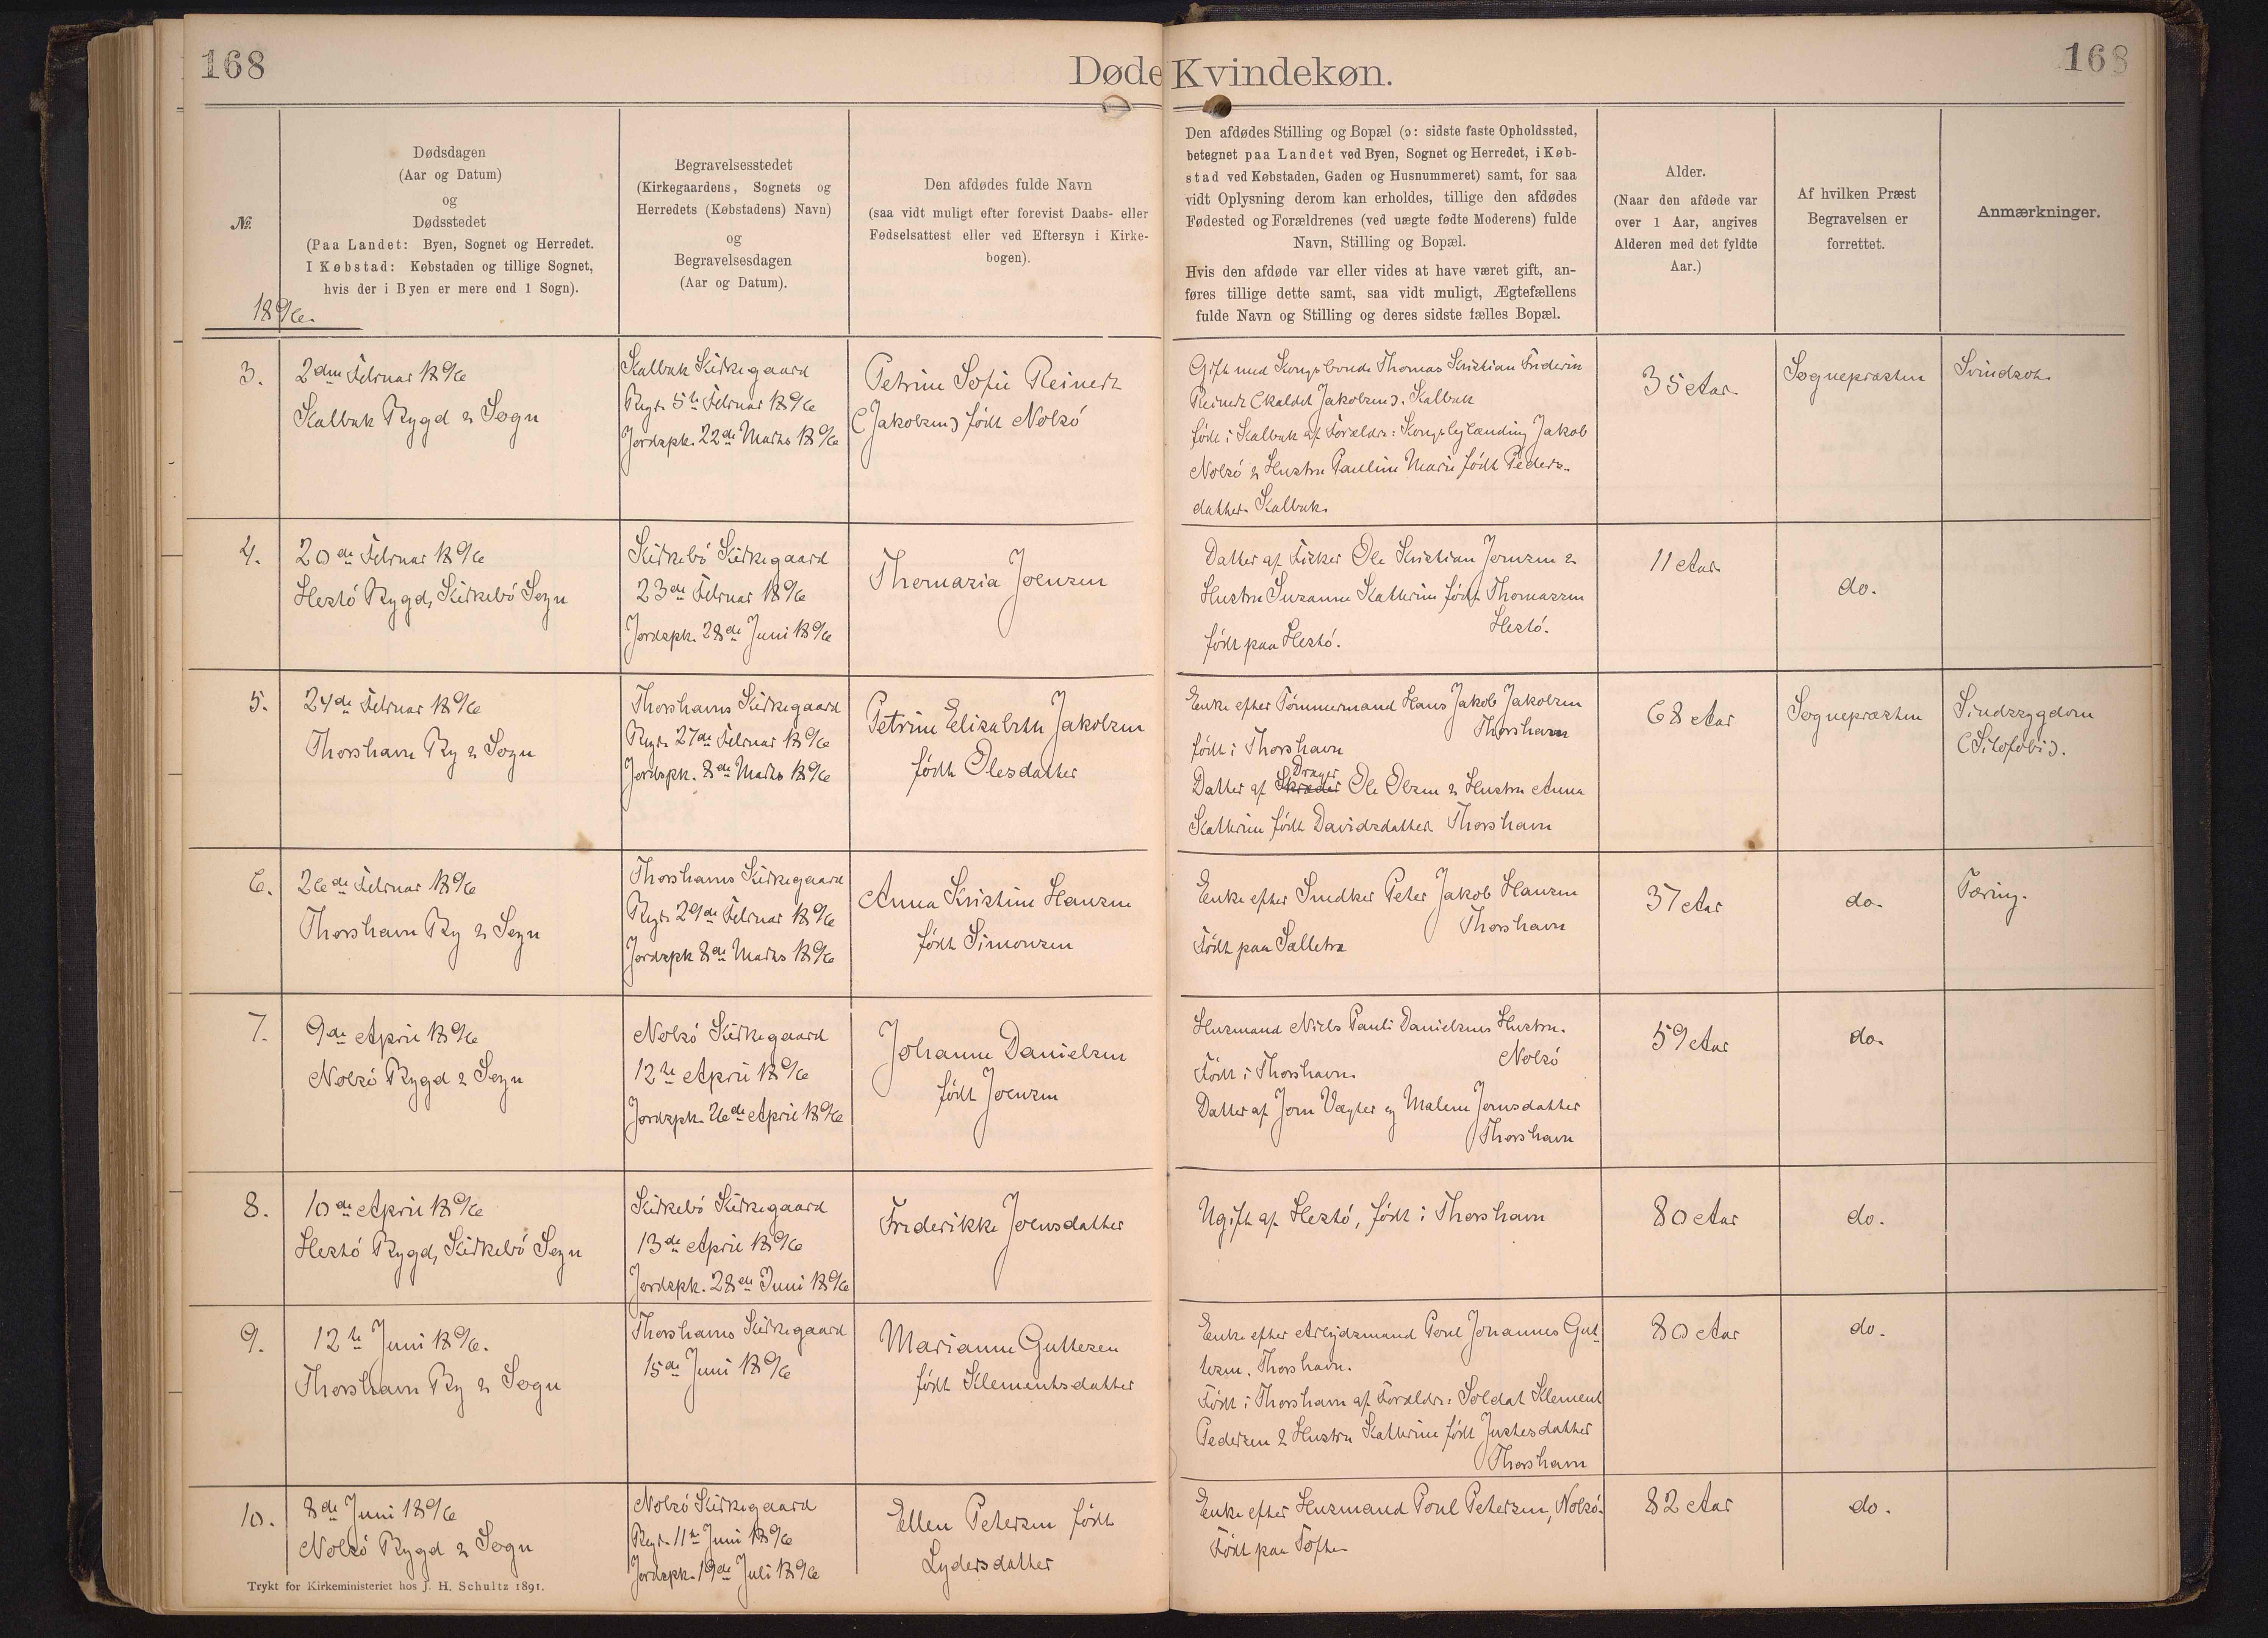 168
Døde Kvindekøn.
168
№
1896.
Dødsdagen
(Aar og Datum)
og
Dødsstedet
(Paa Landet: Byen, Sognet og Herredet.
I Købstad: Købstaden og tillige Sognet,
hvis der i Byen er mere end 1 Sogn).
Begravelsesstedet
(Kirkegaardens, Sognets og
Herredets (Købstadens) Navn)
og
Begravelsesdagen
(Aar og Datum).
Den afdødes fulde Navn
(saa vidt muligt efter forevist Daabs- eller
Fødselsattest eller ved Eftersyn i Kirke-
bogen).
Den afdødes Stilling og Bopæl (ɔ: sidste faste Opholdssted,
betegnet paa Landet ved Byen, Sognet og Herredet, i Køb-
stad ved Købstaden, Gaden og Husnummeret) samt, for saa
vidt Oplysning derom kan erholdes, tillige den afdødes
Fødested og Forældrenes (ved uægte fødte Moderens) fulde
Navn, Stilling og Bopæl.
Hvis den afdøde var eller vides at have været gift, an-
føres tillige dette samt, saa vidt muligt, Ægtefællens
fulde Navn og Stilling og deres sidste fælles Bopæl.
Alder.
(Naar den afdøde var
over 1 Aar, angives
Alderen med det fyldte
Aar.)
Af hvilken Præst
Begravelsen er
forrettet.
Anmærkninger.
3.
2den Februar 1896
Kalbak Bygd & Sogn
Kalbak Kirkegaard
Begr. 5te Februar 1896
Jordspk. 22de Marts 1896
Petrine Sofie Reinert
(Jakobsen) født Nolsö
Gift med Kongsbonde Thomas Kristian Frederik
Reinert (kaldet Jakobsen). Kalbak
født i Kalbak af Forældre: Jakob
Nolsö & Hustru Pauline Marie født Peders-
datter. Kalbak.
35 Aar
Sognepræsten
Svindsot.
4.
20de Februar 1896
Hestö Bygd, Kirkebö Sogn
Kirkebö Kirkegaard
23de Februar 1896
Jordspk. 28de Juni 1896
Thomasia Joensen
Datter af Fisker Ole Kristian Joensen &
Hustru Susanne Kathrine født Thomassen
Hestö.
født paa Hestö.
11 Aar
do.
5.
24de Februar 1896
Thorshavn By & Sogn
Thorshavns Kirkegaard
Begr. 27de Februar 1896
Jordspk. 8de Marts 1896
Petrine Elisabeth Jakobsen
født Olesdatter
Enke efter Tømmermand Hans Jakob Jakobsen
Thorshavn
født i Thorshavn
Drager
Datter af Skræder Ole Olsen & Hustru Anna
Kathrine født Davidsdatter Thorshavn
68 Aar
Sognepræsten
Sindssygdom
(Sitofobi).
6.
26de Februar 1896
Thorshavn By & Sogn
Thorshavns Kirkegaard
Begr. 29de Februar 1896
Jordspk 8de Marts 1896
Anna Kristine Hansen
født Simonsen
Enke efter Snedker Peter Jakob Hansen
Thorshavn
Født paa Selletræ
37 Aar
do.
Tæring.
7.
9de April 1896
Nolsö Bygd & Sogn
Nolsö Kirkegaard
12te April 1896
Jordspk. 26de April 1896
Johanne Danielsen
født Joensen
Husmand Niels Pauli Danielsens Hustru.
Nolsö
Født i Thorshavn.
Datter af Joen Vægter og Malene Joensdatter
Thorshavn
59 Aar
do.
8.
10de April 1896
Hestö Bygd, Kirkebö Sogn
Kirkebö Kirkegaard
13de April 1896
Jordspk. 28de Juni 1896
Frederikke Joensdatter
Ugift af Hestö, født i Thorshavn
80 Aar
do.
9.
12te Juni 1896.
Thorshavn By & Sogn
Thorshavns Kirkegaard
15de Juni 1896
Marianne Guttesen
født Klementsdatter
Enke efter Arbejdsmand Poul Johannes Gut-
tesen. Thorshavn.
Født i Thorshavn af Forældre: Soldat Klement
Pedersen & Hustru Kathrine født Justesdatter
Thorshavn
80 Aar
do.
10.
8de Juni 1896
Nolsö Bygd & Sogn
Nolsö Kirkegaard
Begr. 11te Juni 1896
Jordspk. 19de Juli 1896
Ellen Petersen født
Lydersdatter
Enke efter Husmand Poul Petersen, Nolsö.
Født paa Tofte.
82 Aar
do.
Trykt for Kirkeministeriet hos J. H. Schultz 1891.